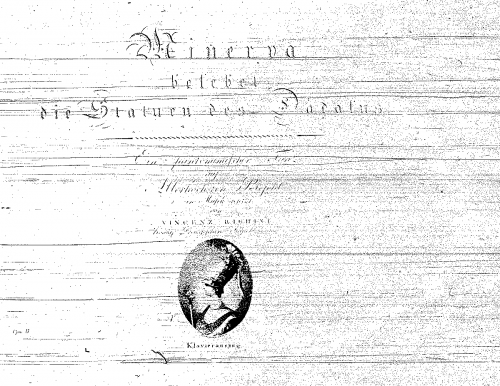 Minerva
belebet
die Statuen des Dädalus
Ein pantomimischer Tanz
auf
Allerhöchsten Befehl
in Musik gesetzt
von
VINCENZ RIGHINI
Königl.
Klavierauszug